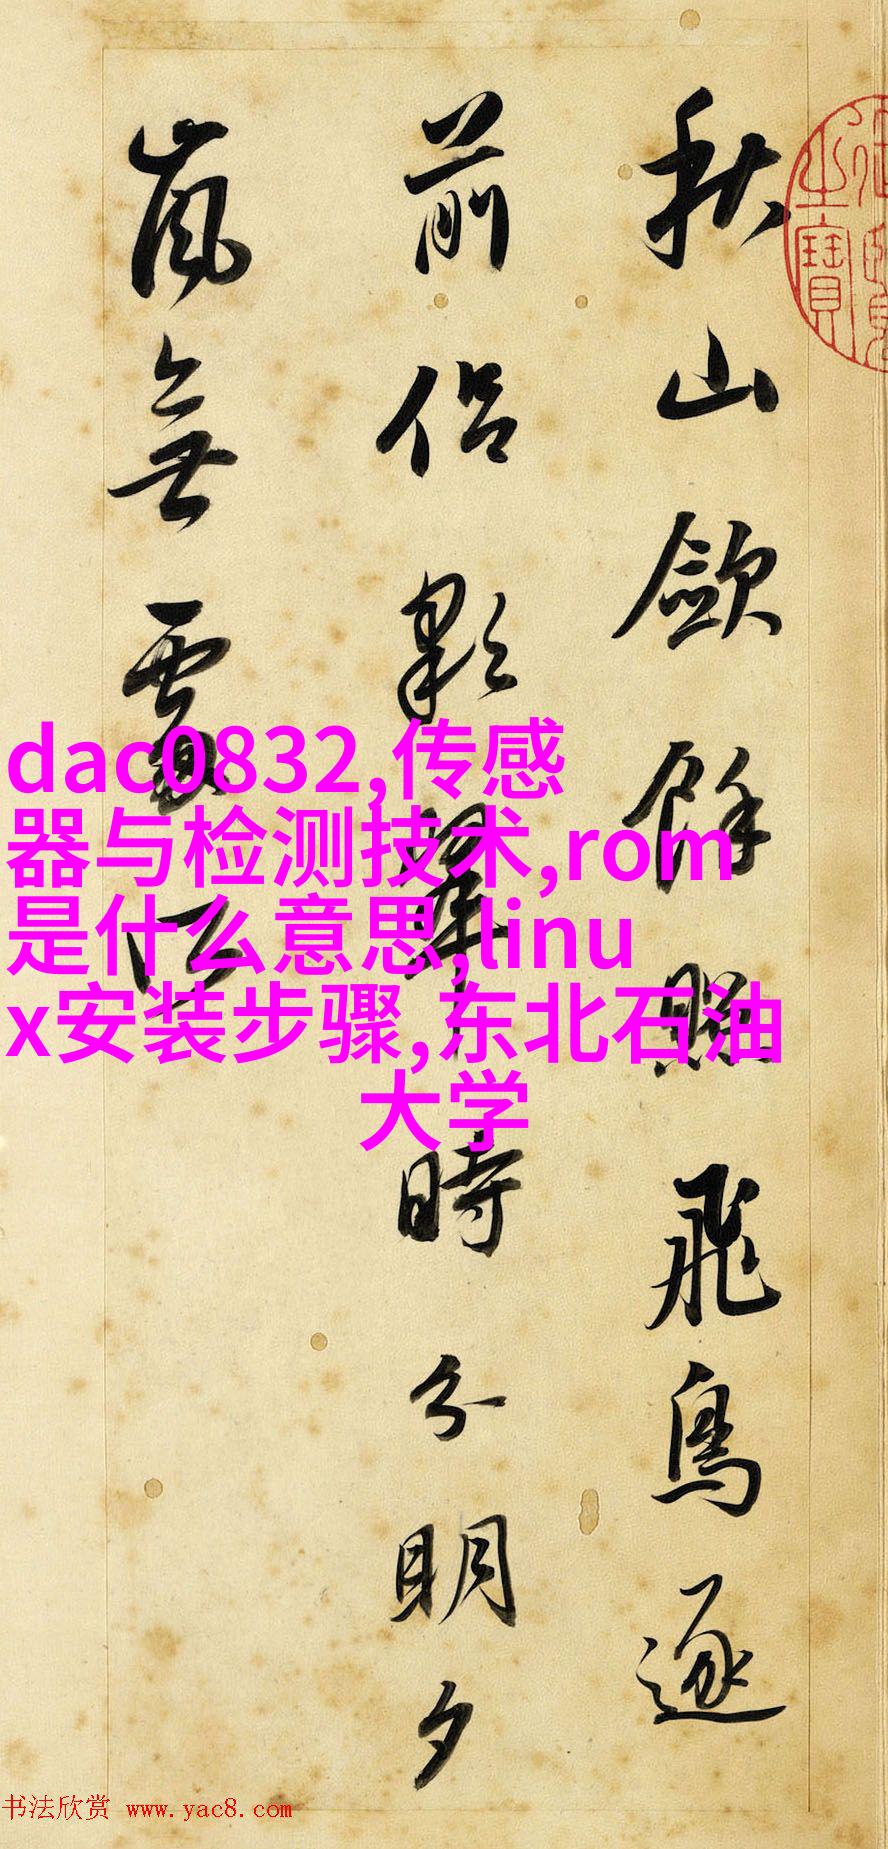 秋山歛餘照飛鳥逐
前侣彩翠時分明夕
嵐無處
dac0832,传感
器与检测技术,rom
是什么意思,linu
x安装步骤,东北石油
大学
之寶
书法欣赏 www.yac8.com